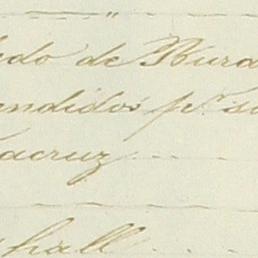 ado de Bura
endidos pr. su
acruz
hall